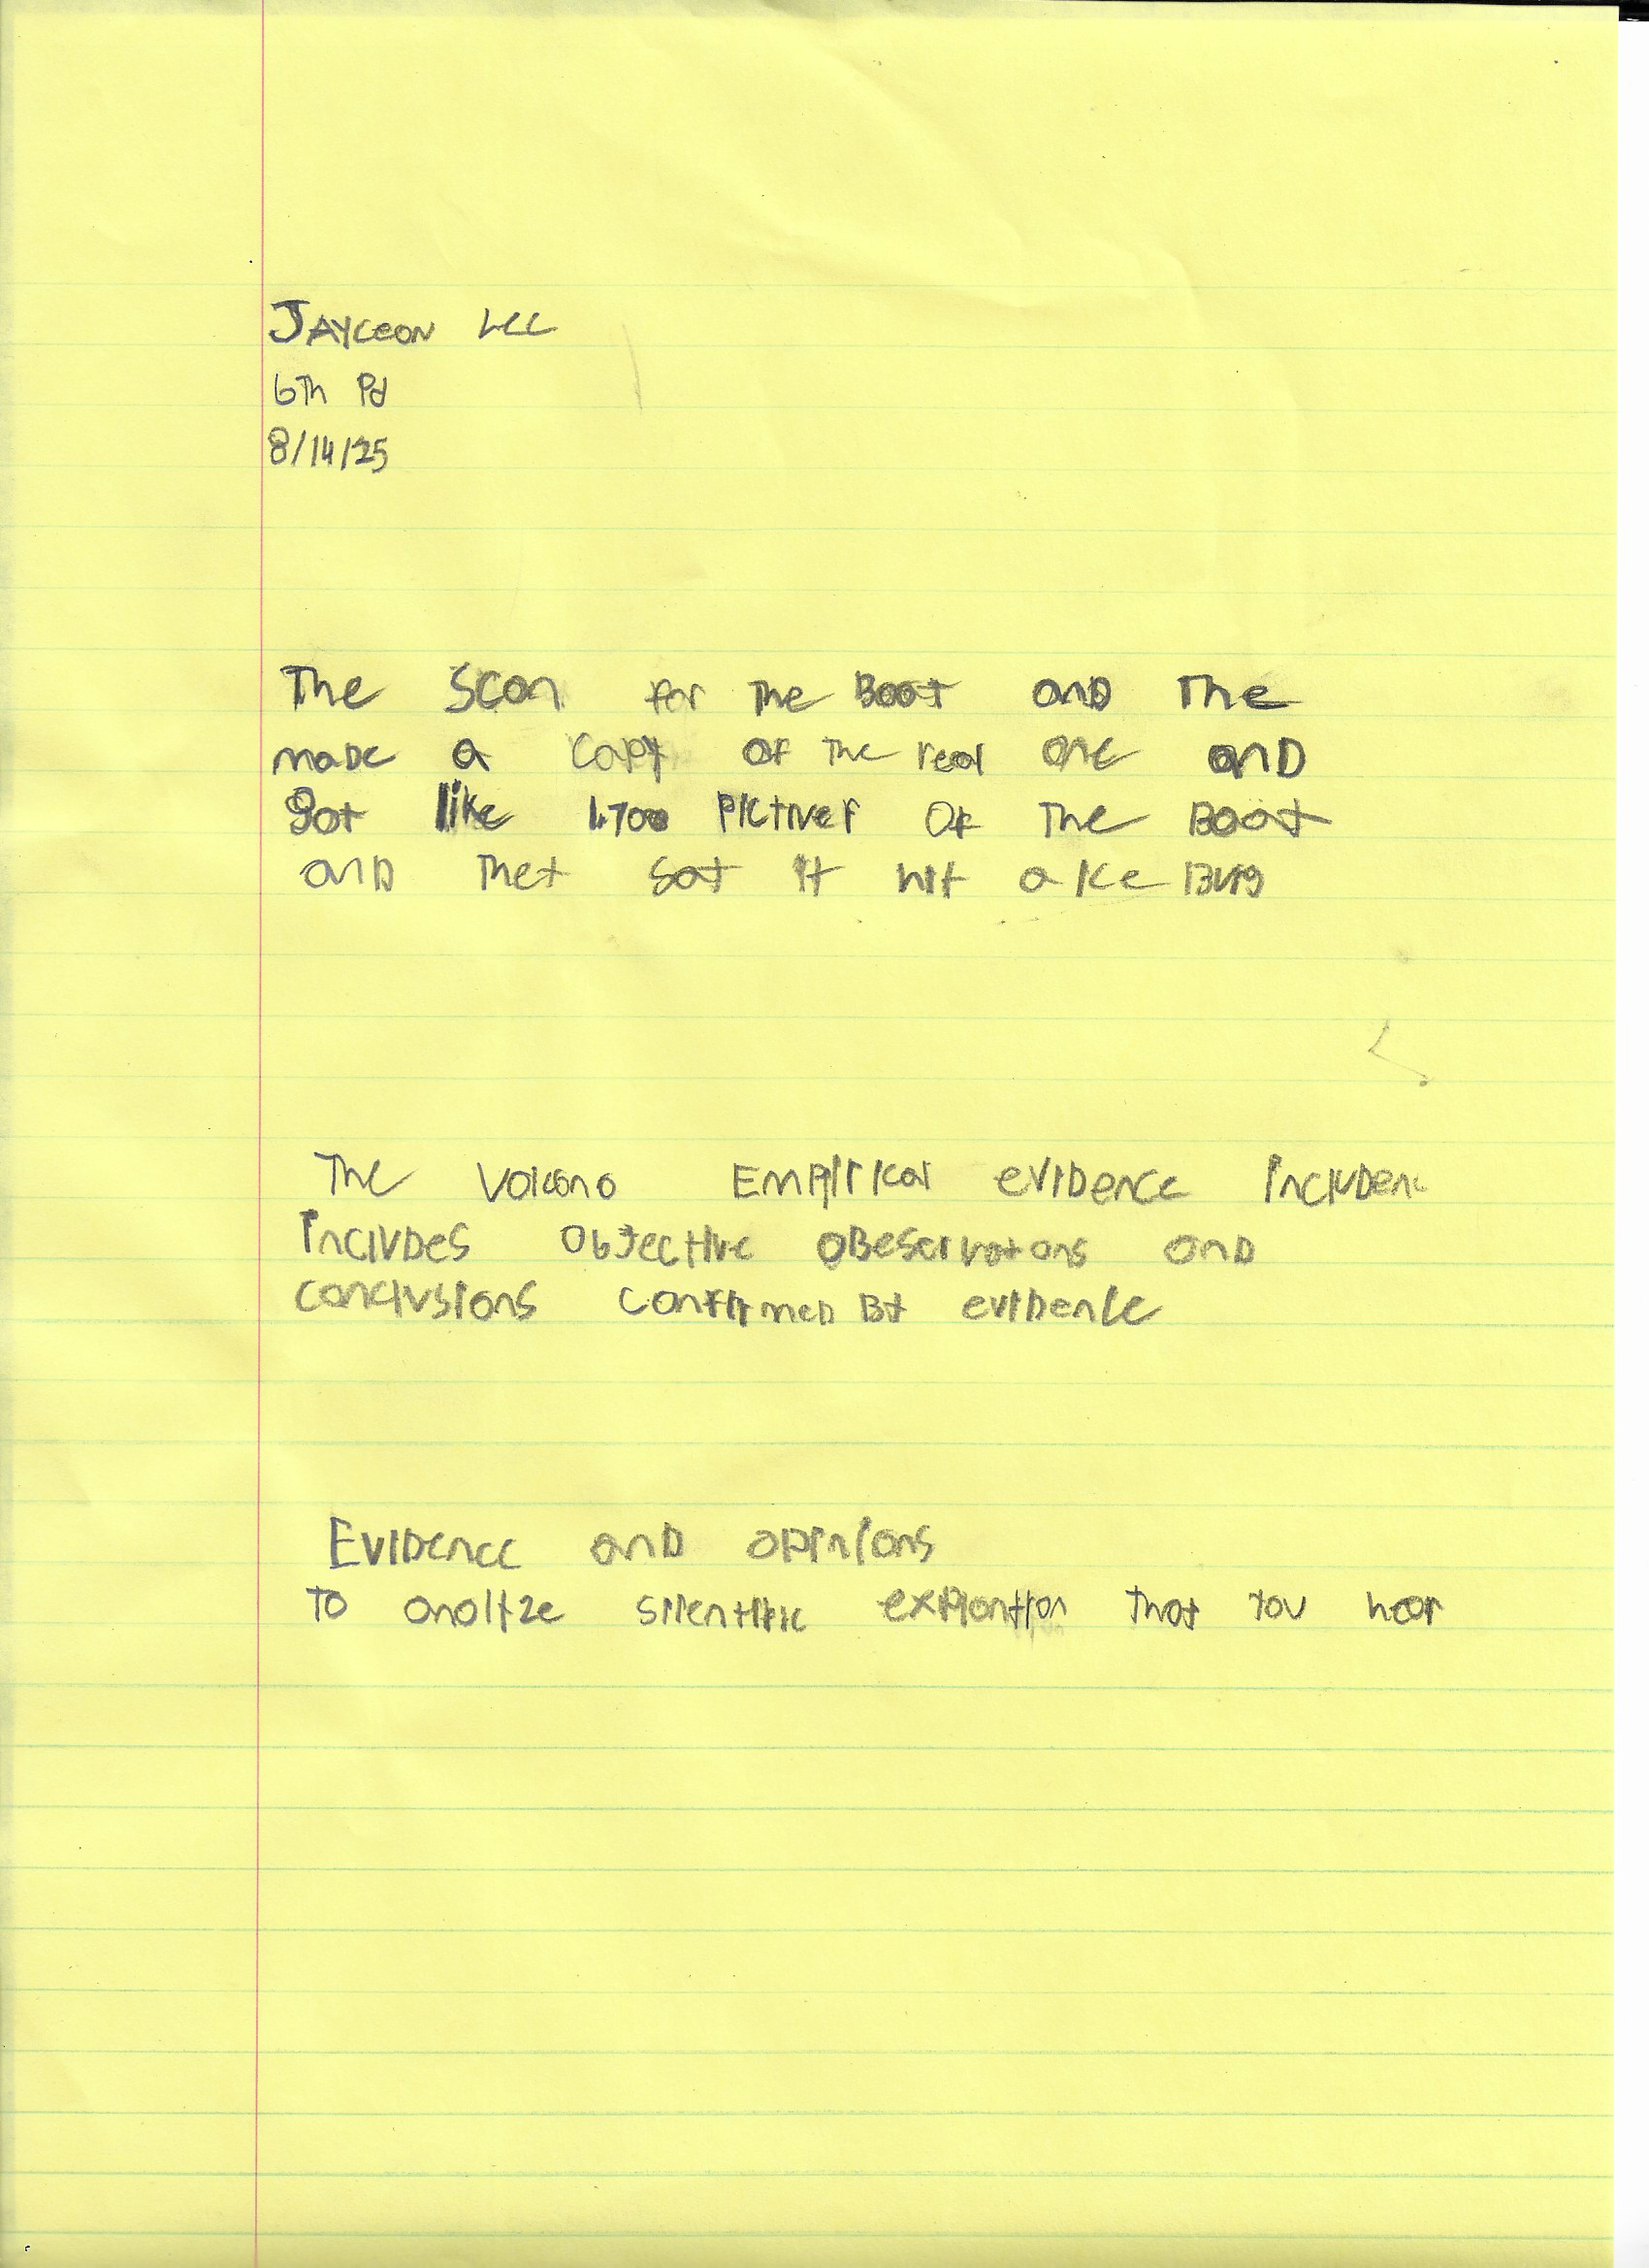 JAYCEON LEE
6Th Pd
8/14/25
The Scan for The Boat anD The
maDe a Copy of The real one anD
got like 4700 Pictures Of The Boat
anD They say it hit a Ice Burg
The Volcano Empirical eviDence incluDen
incluDes objective oBeservatons anD
conclusions confirmeD By eviDence
EviDence anD opinions
To analyze sientific explantion That you hear